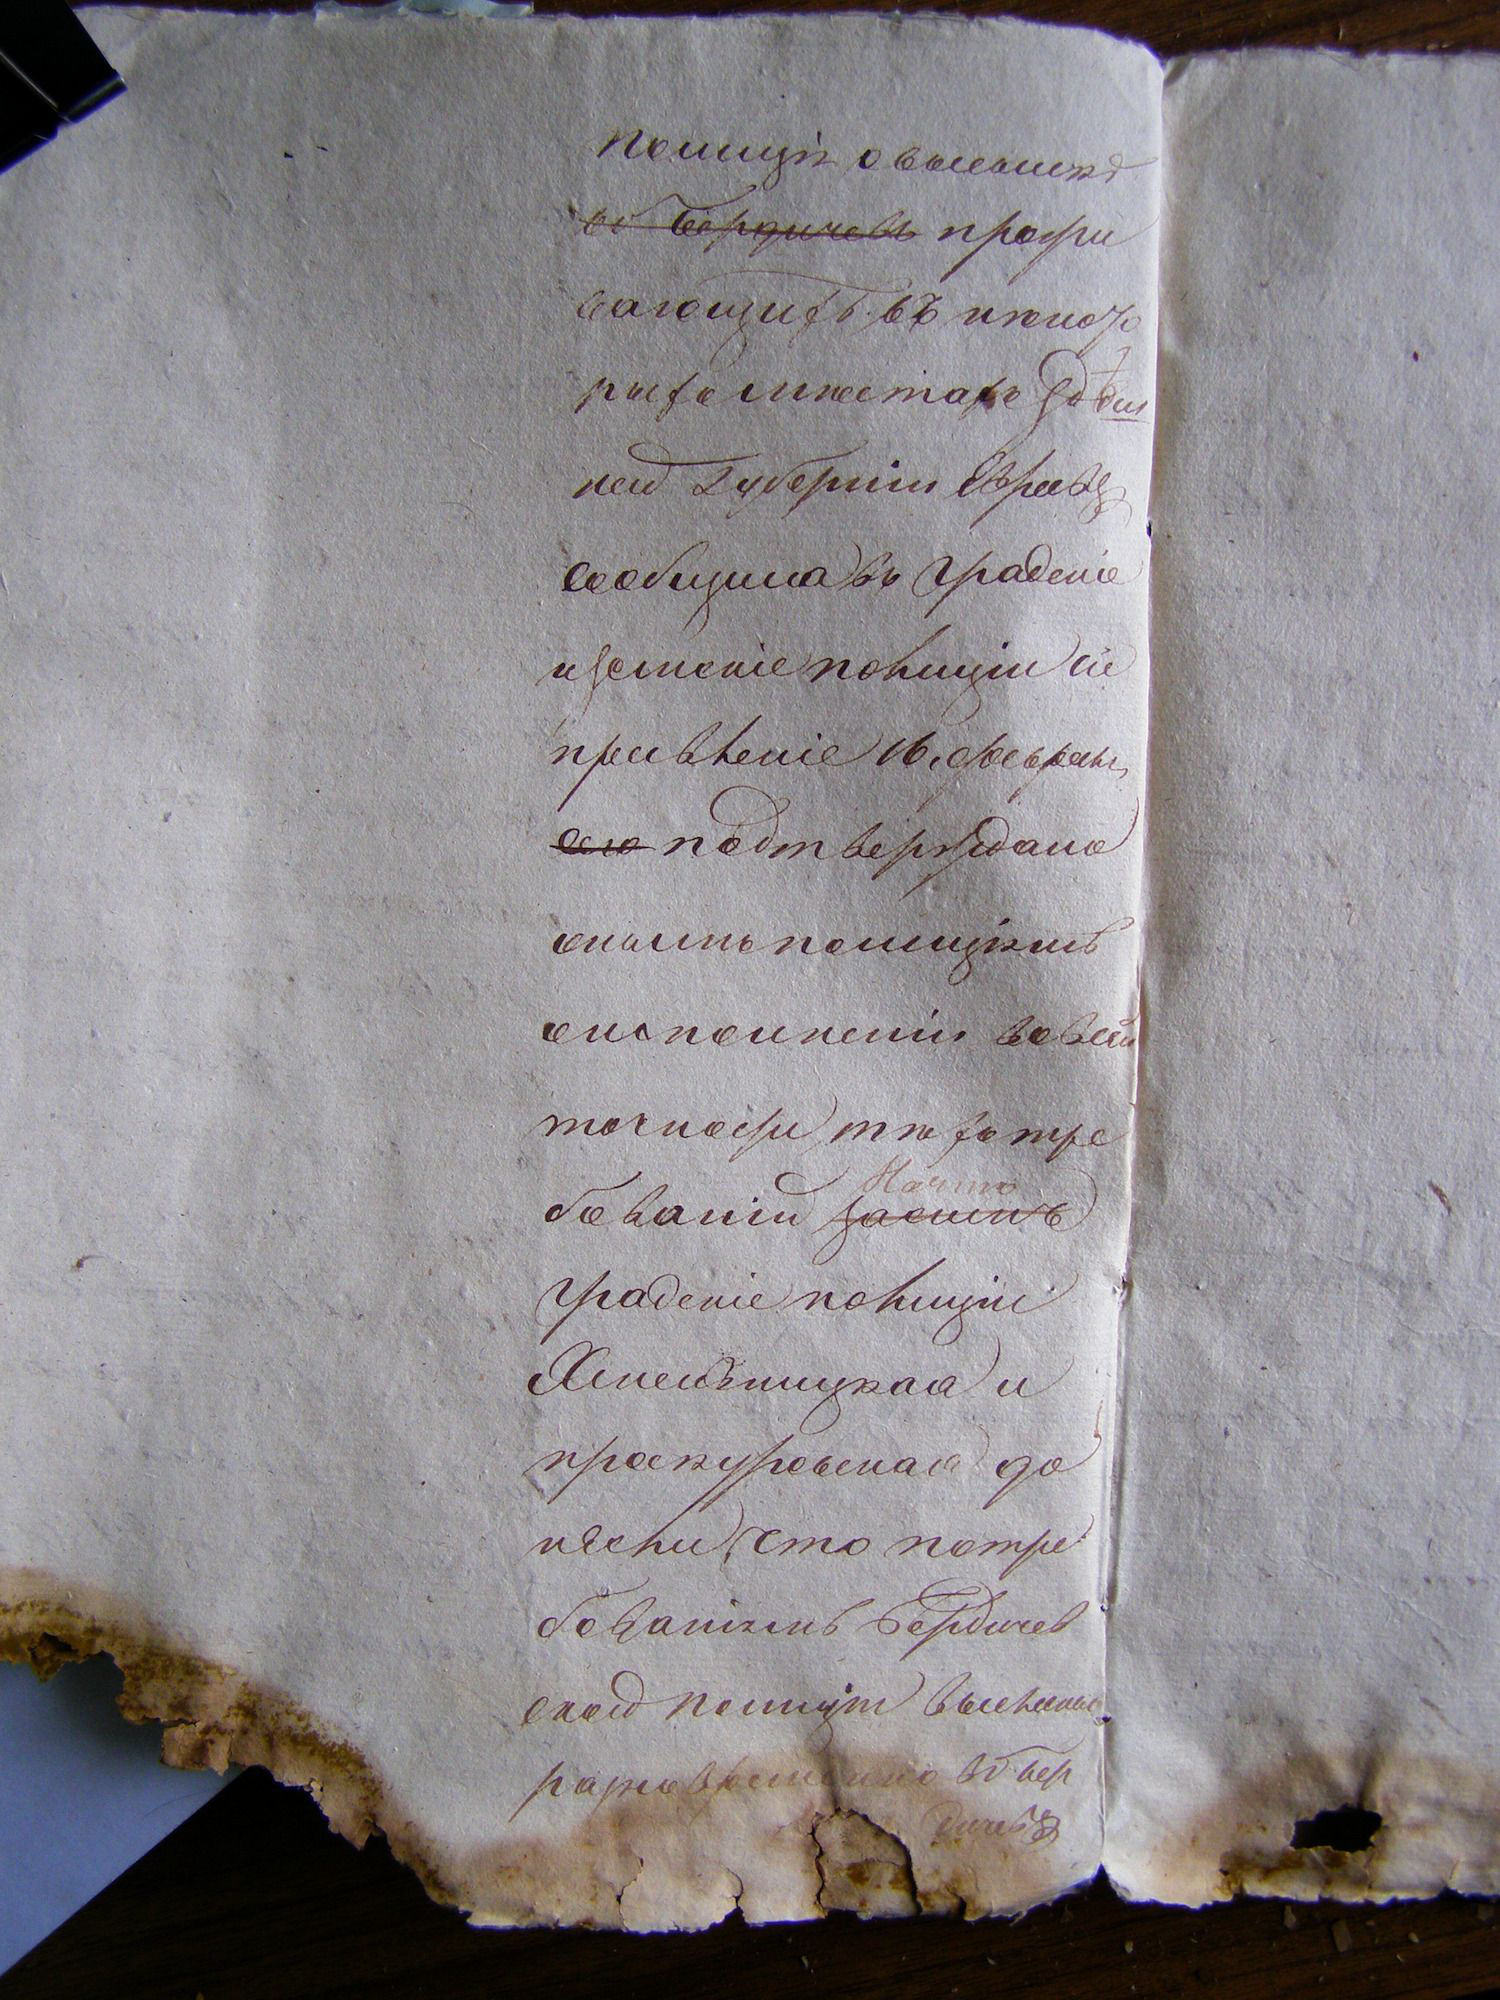 полиція о высылкѣ
въ Бердичевъ прожи
вающихъ въ нѣкото
рыхъ мѣстахъ здѣш
ней Губерніи Евреевъ
сообщила въ градскіе
и земскіе полиціи сіе
правленіе 16. февраля
сего подтверждано
онымъ полиціямъ
о исполненіи во всей
точности тѣхъ тре
бованій На что
градскіе полиціи
Хмельницкая и
проскуровская до
несли, что по тре
бованіямъ Бердичев
ской полиціи высланы
разновременно въ Бер
дичевъ